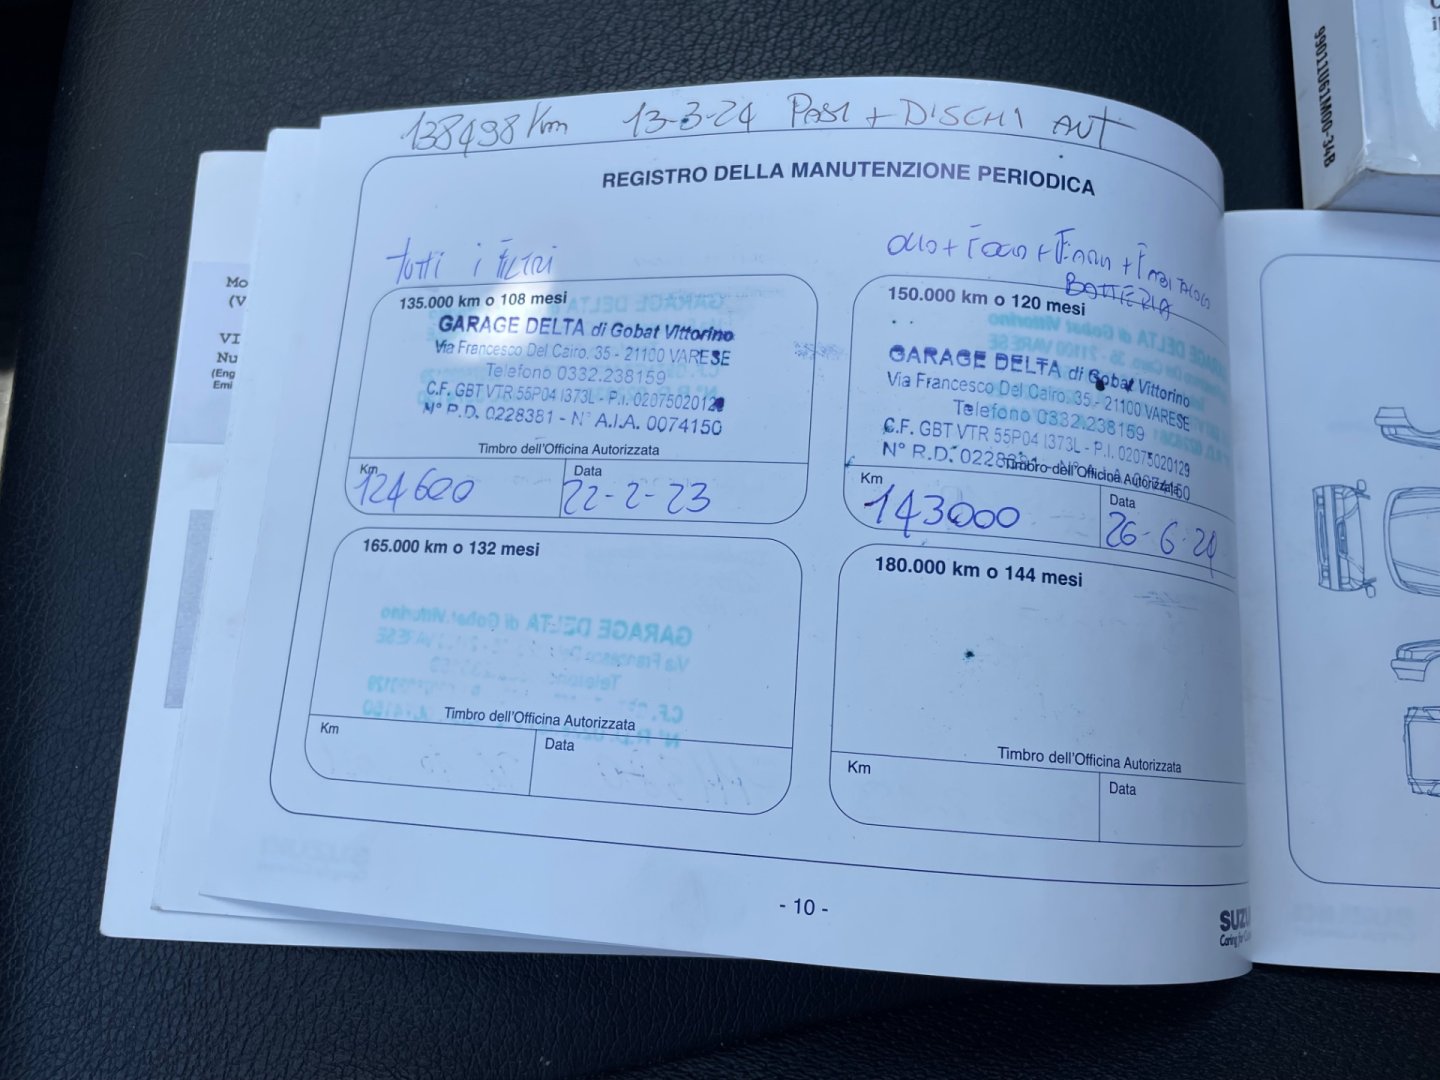 138498 Km 13-3-24 PAST + DISCHI ANT
REGISTRO DELLA MANUTENZIONE PERIODICA
tutti i FILTRI
135.000 km o 108 mesi
GARAGE DELTA di Gobat Vittorino
Via Francesco Del Cairo, 35 - 21100 VARESE
Telefono 0332.238159
C.F. GBT VTR 55P04 I373L - P.I. 02075020129
N° R.D. 0228381 - N° A.I.A. 0074150
Timbro dell'Officina Autorizzata
Km
124600
Data
22-2-23
OLIO + F. OLIO + F. ARIA + F. ABITACOLO
BATTERIA
150.000 km o 120 mesi
GARAGE DELTA di Gobat Vittorino
Via Francesco Del Cairo, 35 - 21100 VARESE
Telefono 0332.238159
C.F. GBT VTR 55P04 I373L - P.I. 02075020129
N° R.D. 0228381 - N° A.I.A. 0074150
Timbro dell'Officina Autorizzata
Km
143000
Data
26-6-24
165.000 km o 132 mesi
Timbro dell'Officina Autorizzata
Km
Data
180.000 km o 144 mesi
Timbro dell'Officina Autorizzata
Km
Data
- 10 -
99011U61M00-34B
Mo
(V
VI
Nu
(Eng
Emi